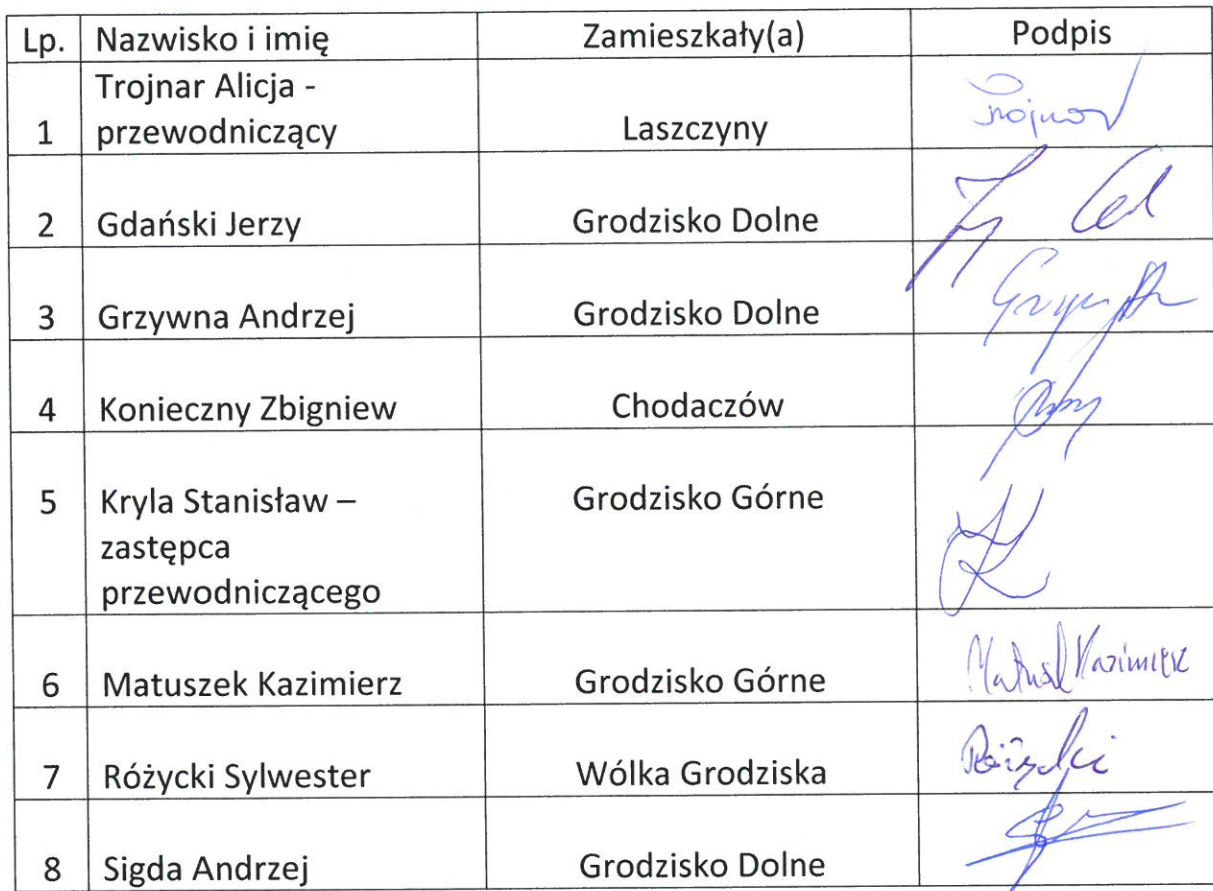 Lp. Nazwisko i imię Zamieszkały(a) Podpis
Trojnar Alicja -
1 przewodniczący Laszczyny Trojnar
2 Gdański Jerzy Grodzisko Dolne
3 Grzywna Andrzej Grodzisko Dolne
4 Konieczny Zbigniew Chodaczów
5 Kryla Stanisław – Grodzisko Górne
zastępca
przewodniczącego
6 Matuszek Kazimierz Grodzisko Górne Kazimierz
7 Różycki Sylwester Wólka Grodziska Różycki
8 Sigda Andrzej Grodzisko Dolne